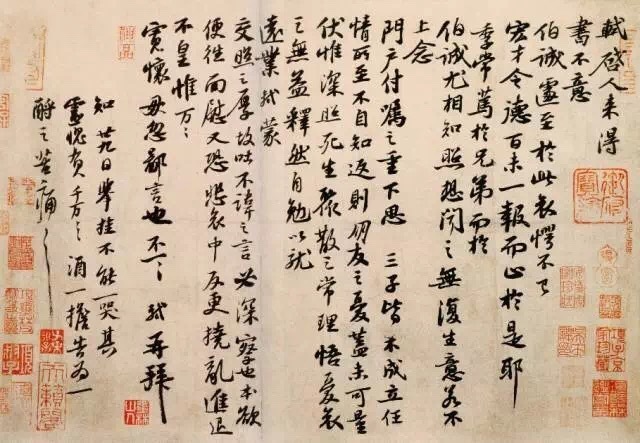 軾啓人來得
書不意
伯誠遽至於此哀愕不已
宏才令德百未一報而止於是耶
季常篤於兄弟而於
伯誠尤相知照想聞之無復生意若不
上念
門戶付囑之重下思三子皆不成立任
情所至不自知返則朋友之憂蓋未可量
伏惟深照死生聚散之常理悟憂哀
之無益釋然自勉以就
遠業軾蒙
交照之厚故吐不諱之言必深察也本欲
便往面慰又恐悲哀中反更撓亂進退
不皇惟万〻
寬懷毋忽鄙言也不一〻軾再拜
知廿九日舉挂不能一哭其
靈愧負千万〻〻酒一擔告為一
酹之苦痛〻〻